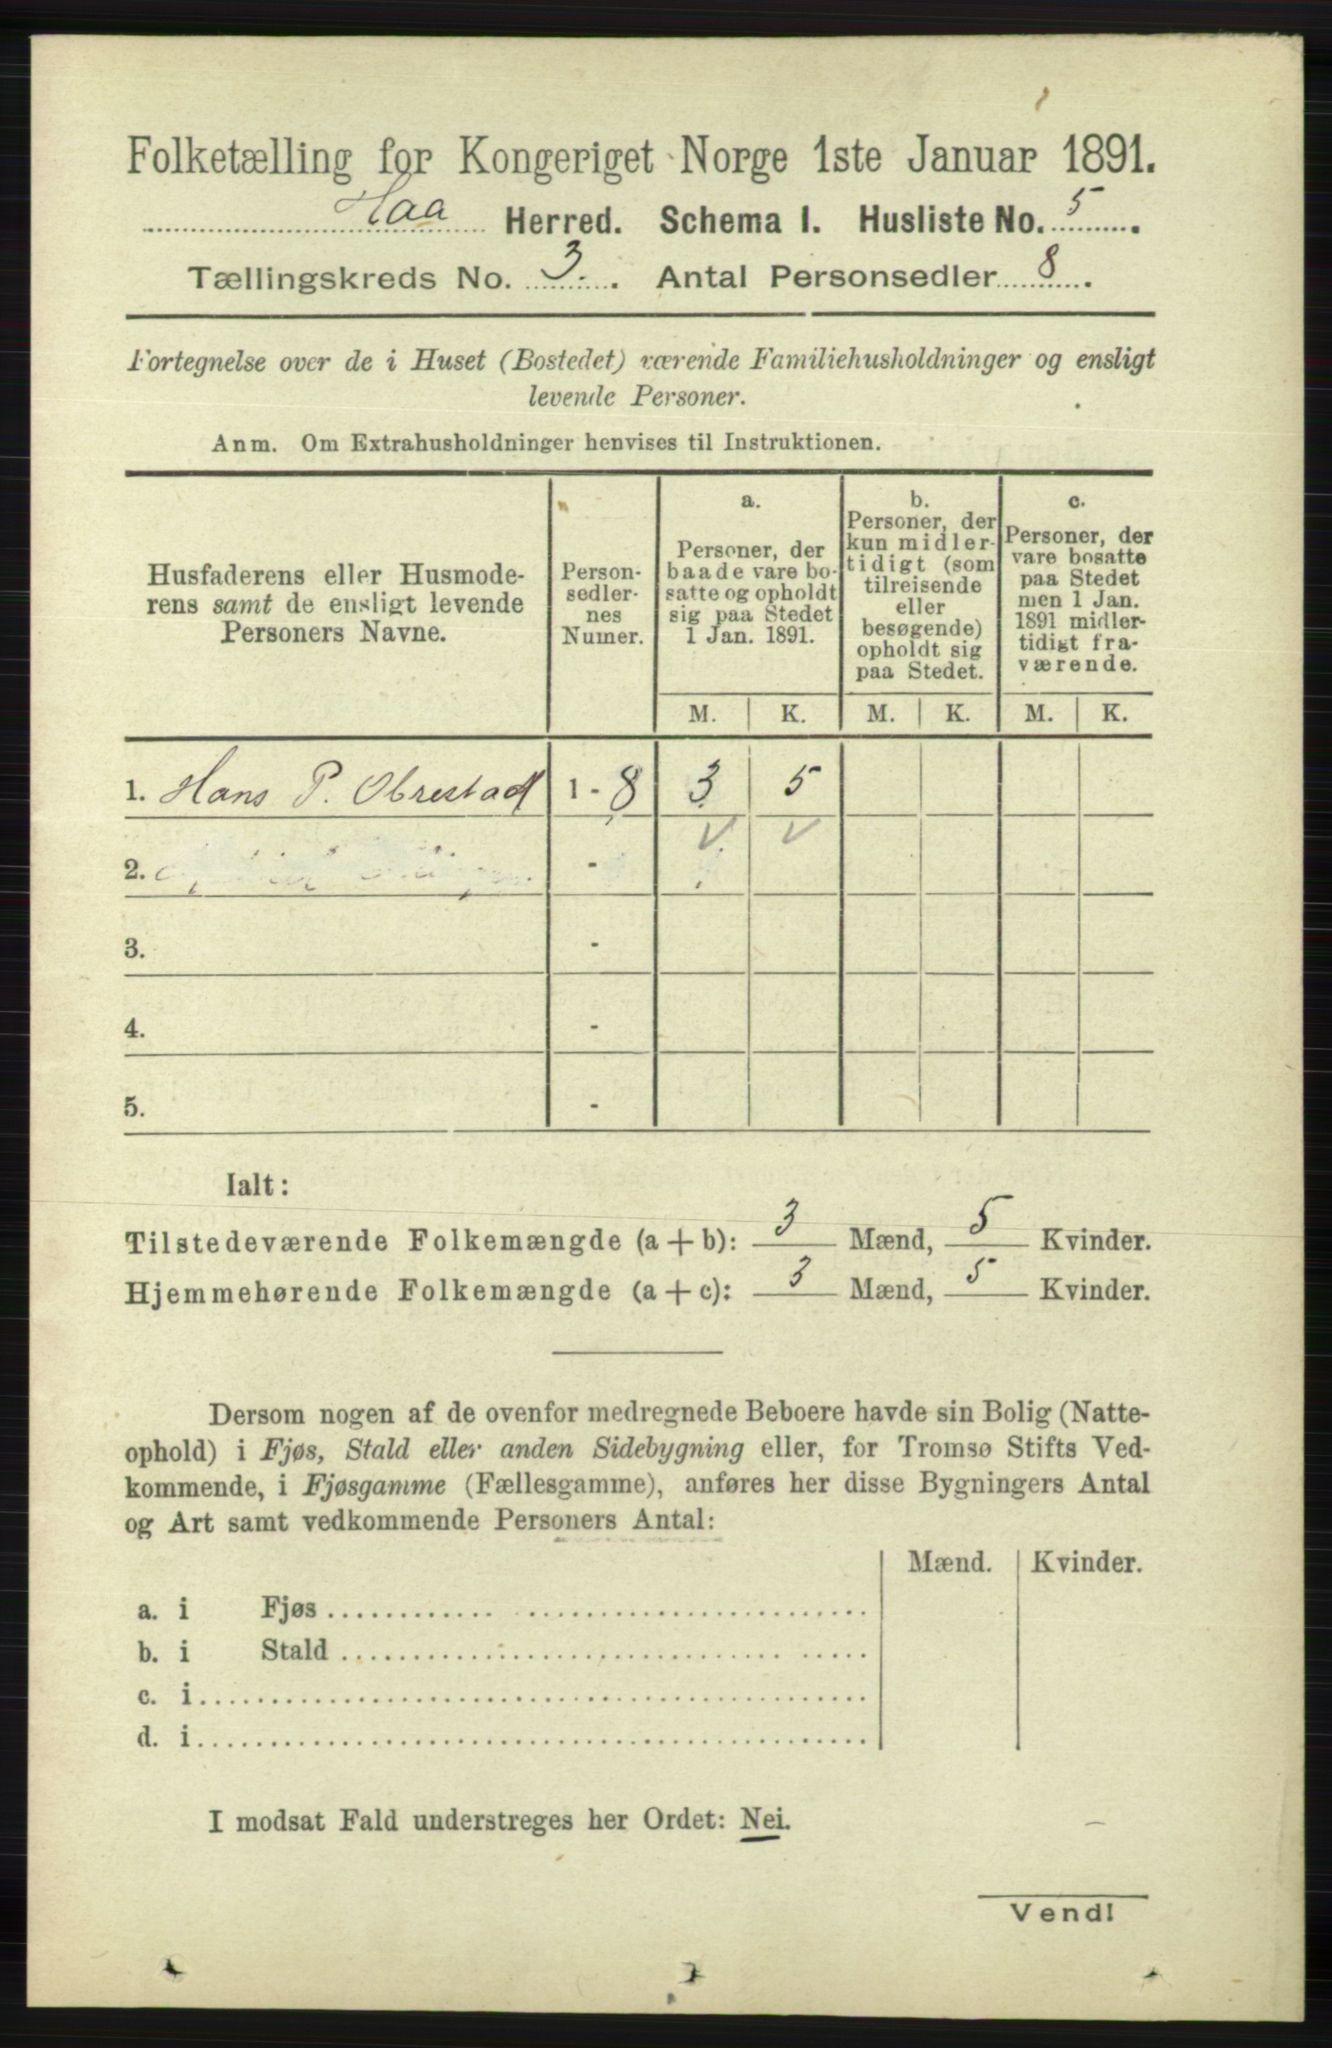 Folketælling for Kongeriget Norge 1ste Januar 1891.
Haa Herred. Schema I. Husliste No. 5.
Tællingskreds No. 3. Antal Personsedler 8.
Fortegnelse over de i Huset (Bostedet) værende Familiehusholdninger og ensligt
levende Personer.
Anm. Om Extrahusholdninger henvises til Instruktionen.
Husfaderens eller Husmode-
rens samt de ensligt levende
Personers Navne.
Person-
sedler-
nes
Numer.
a.
Personer, der
baade vare bo-
satte og opholdt
sig paa Stedet
1 Jan. 1891.
b.
Personer, der
kun midler-
tidigt (som
tilreisende
eller
besøgende)
opholdt sig
paa Stedet.
c.
Personer, der
vare bosatte
paa Stedet
men 1 Jan.
1891 midler-
tidigt fra-
værende.
M. K. M. K. M. K.
1. Hans P. Obrestad 1 - 8 3 5
2. -
3. -
4. -
5. -
Ialt:
Tilstedeværende Folkemængde (a + b): 3 Mænd, 5 Kvinder.
Hjemmehørende Folkemængde (a + c): 3 Mænd, 5 Kvinder.
Dersom nogen af de ovenfor medregnede Beboere havde sin Bolig (Natte-
ophold) i Fjøs, Stald eller anden Sidebygning eller, for Tromsø Stifts Ved-
kommende, i Fjøsgamme (Fællesgamme), anføres her disse Bygningers Antal
og Art samt vedkommende Personers Antal:
Mænd. Kvinder.
a. i Fjøs
b. i Stald
c. i
d. i
I modsat Fald understreges her Ordet: Nei.
Vend!